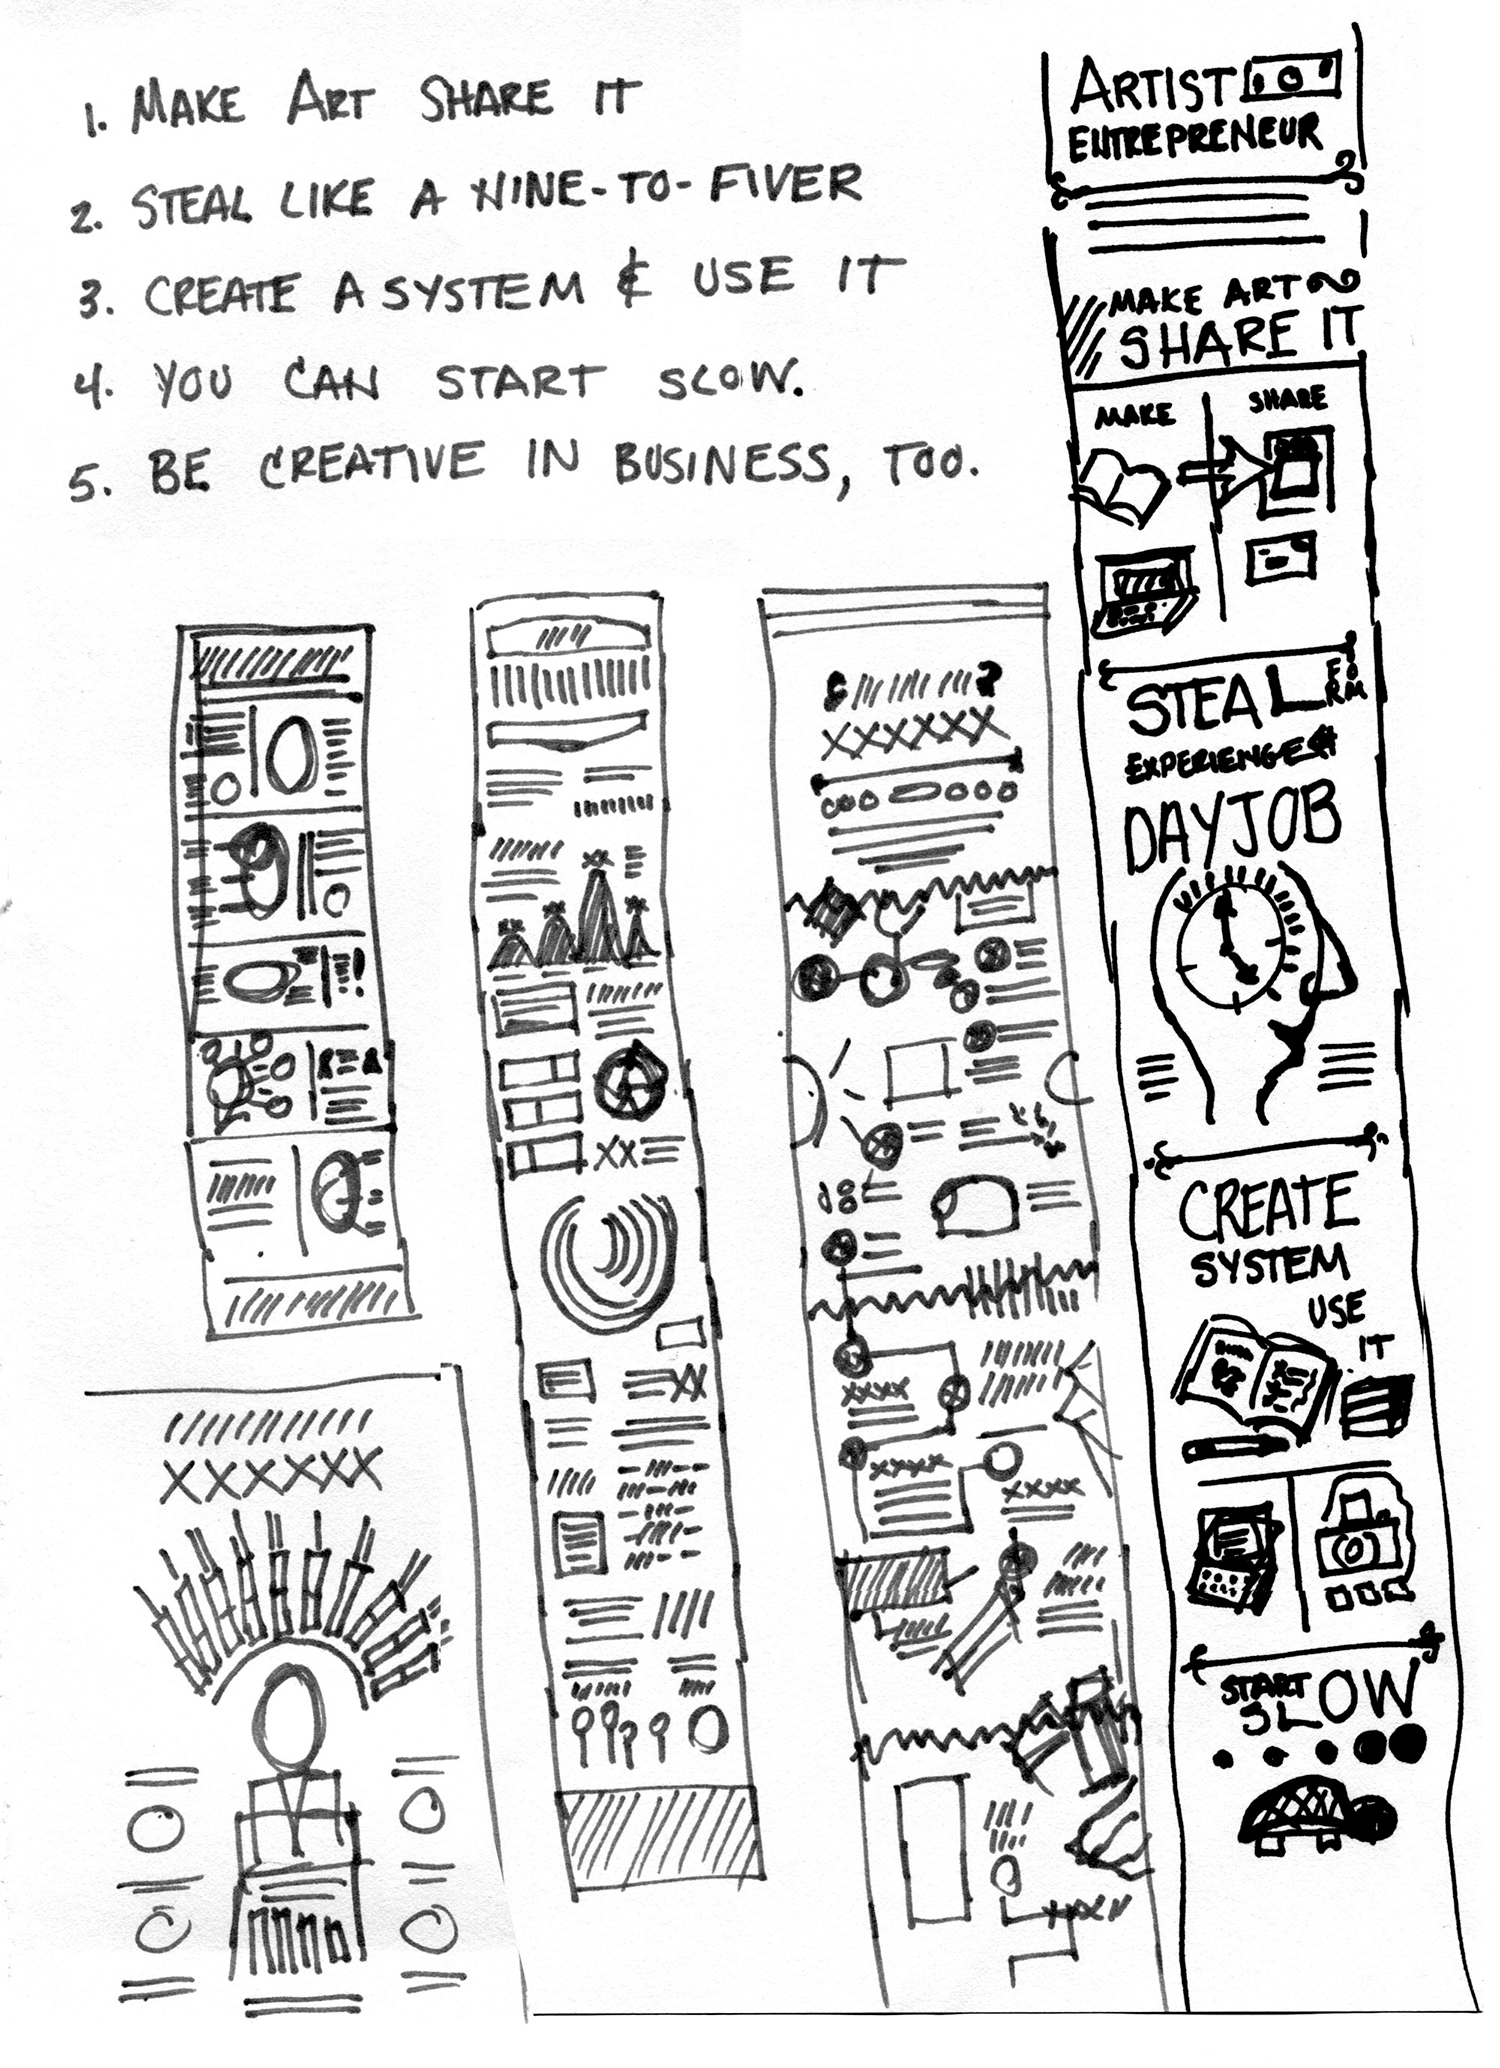 1. MAKE ART SHARE IT
2. STEAL LIKE A NINE-TO-FIVER
3. CREATE A SYSTEM & USE IT
4. YOU CAN START SLOW.
5. BE CREATIVE IN BUSINESS, TOO.
ARTIST
ENTREPRENEUR
MAKE ART
SHARE IT
MAKE
SHARE
STEAL FORM
EXPERIENCE
DAYJOB
CREATE
SYSTEM
USE
IT
START
SLOW